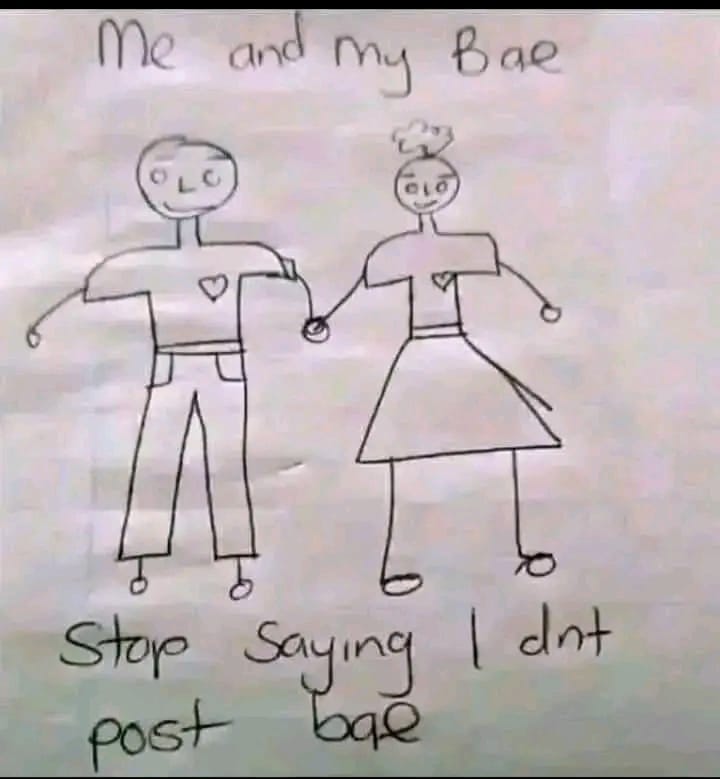 Me and my Bae
Stop Saying I dnt
post bae